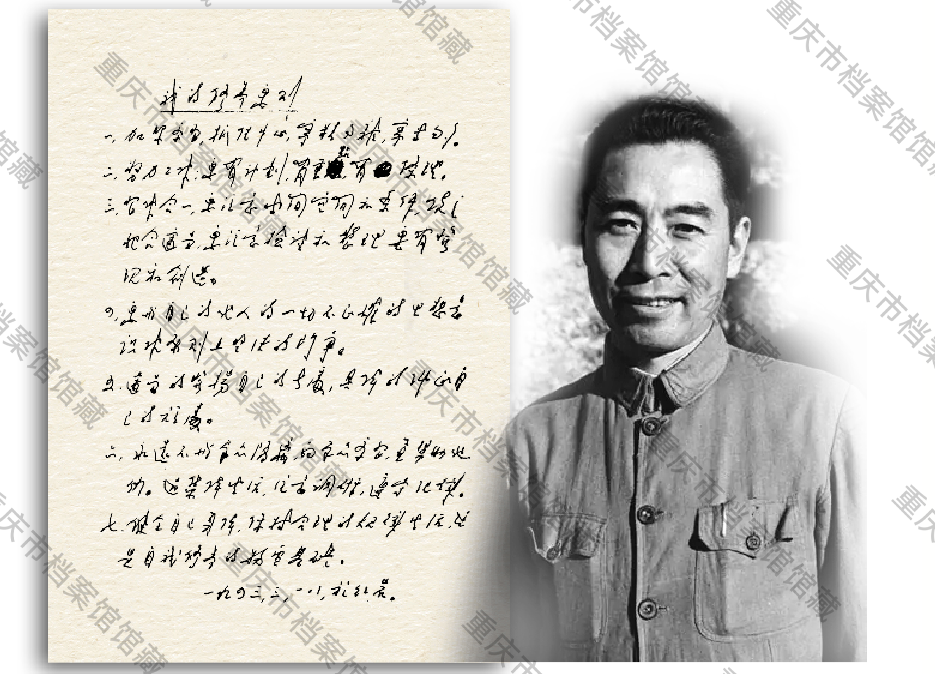 我的修养要则
一、加紧学习,抓住中心,宁精勿杂,宁专勿多。
二、努力工作,要有计划,有重点,有条理。
三、习作合一,要注意时间空间和条件,使之
配合适当,要注意检讨和整理,要有发
现和创造。
四、要与自己的他人的一切不正确的思想意
识作原则上坚决的斗争。
五、适当的发扬自己的长处,具体的纠正自
己的短处。
六、永远不与群众隔离,向群众学习,并帮助他
们。过集体生活,注意调研,遵守纪律。
七、健全自己身体,保持合理的规律生活,这
是自我修养的物质基础。
一九四三、三、一八,于红岩。
重庆市档案馆馆藏